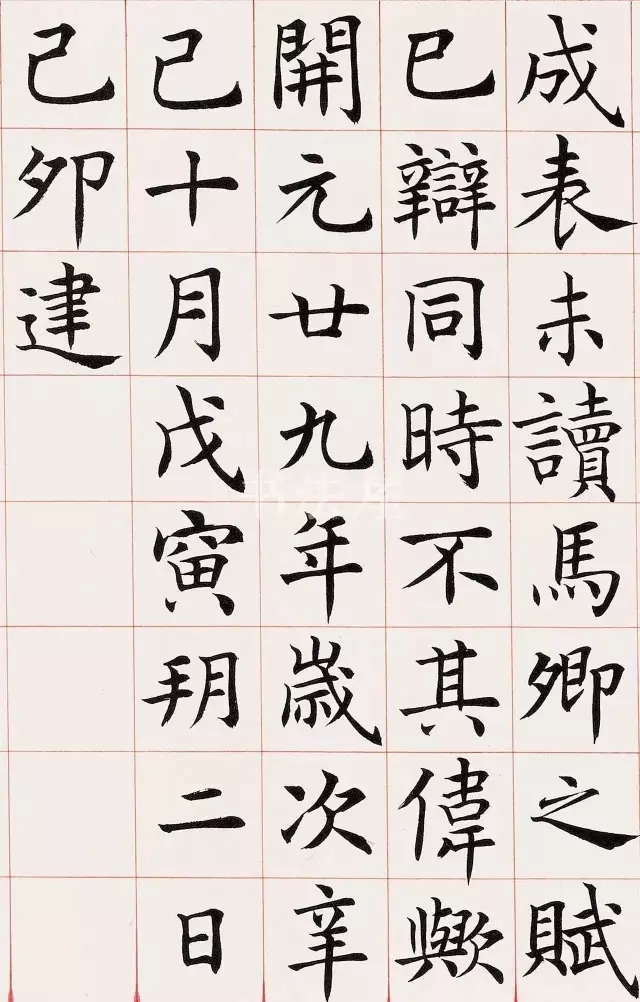 成表未讀馬卿之賦
巳辯同時不其偉歟
開元廿九年歲次辛
己十月戊寅朔二日
己卯建